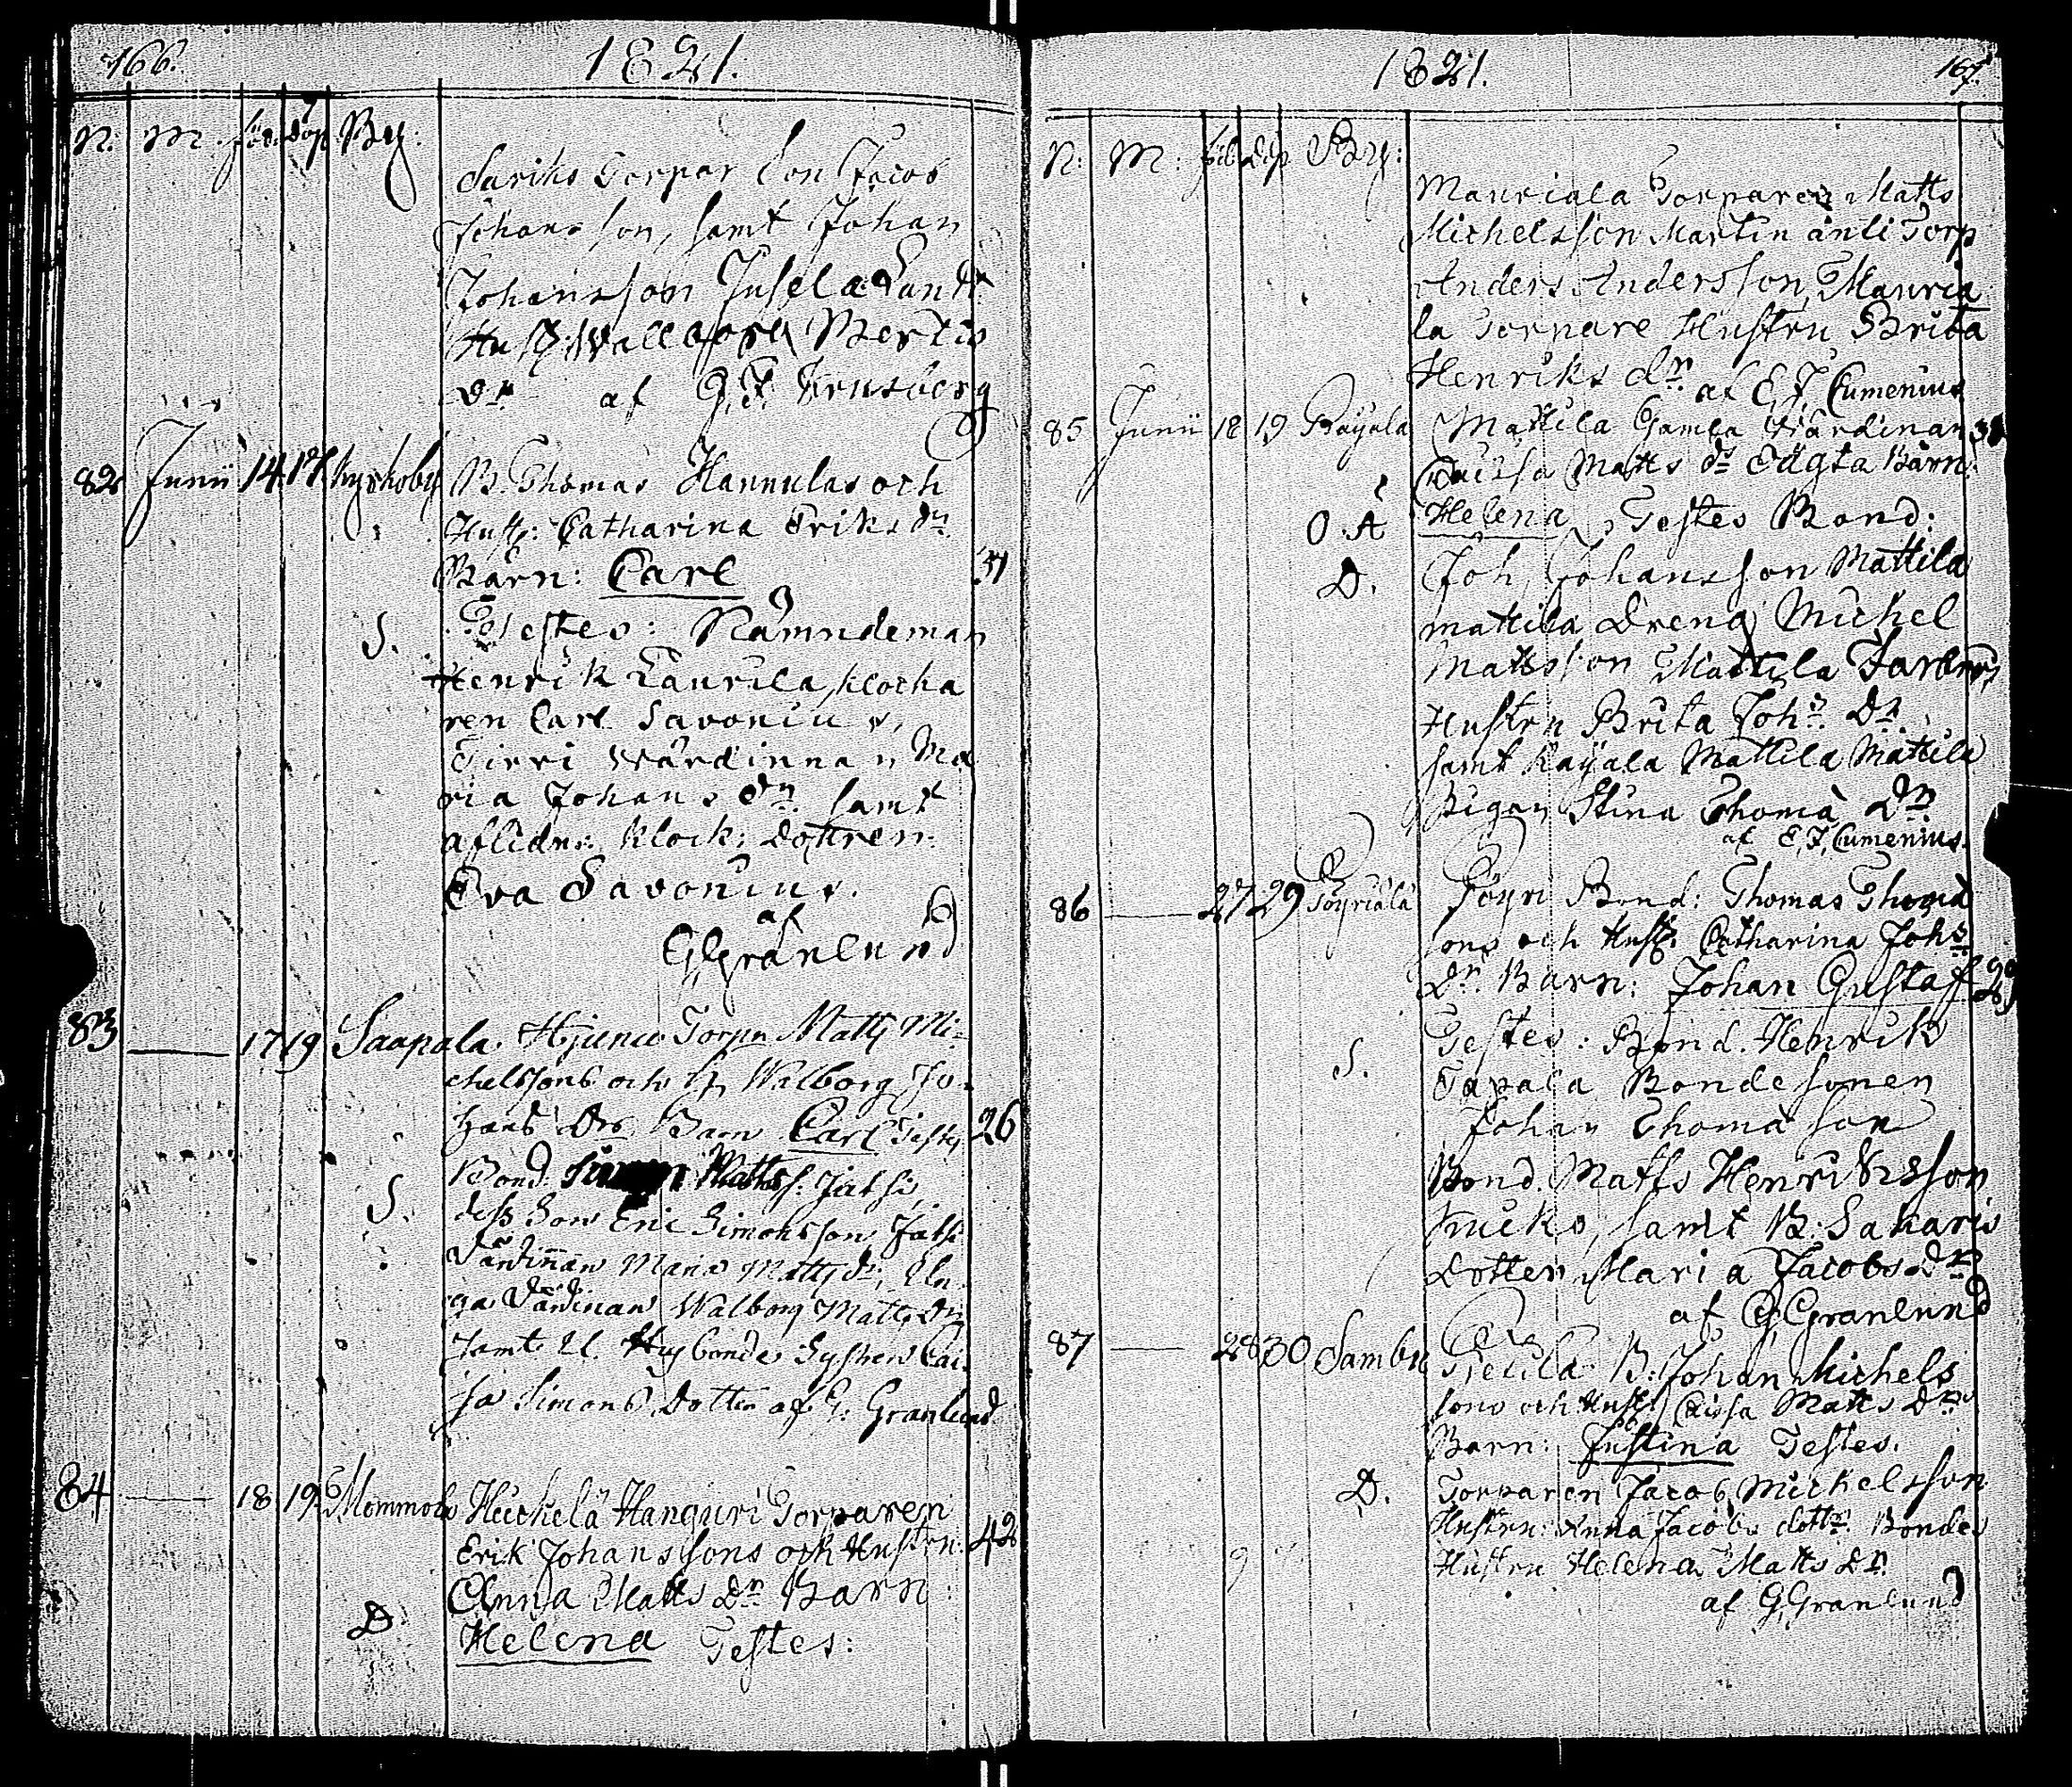 166.
1821.
N: M. föd. döp By:
Torpar Son Jacob
Johansson, samt Johan
Johansson
Hust: Wallborg Bertils
dr. af G. F.
82 Junii 14 17 Kyrkoby B. Thomas Hannulas och
Hust: Catharina Eriks dr.
Barn: Carl 37
S. Testes: Nämndeman
Henrik Laurila, klocka
ren Carl Savonius,
Tirri Wärdinnan Ma
ria Johans dr. samt
aflidn: Klock: dottren:
Eva Savonius.
af
G Granlund
83 — 17 19 Saapala. Torpn Matts Mi-
chelssons och H. Walborg Jo-
hans Drs Barn Carl Testes 26
S. Bond: Matts s:
dess Son Eric Simonsson
Värdinnan Maria Matts dr,
ga Värdinan Walborg Matts dr
samt Husbondes Systern Cai-
sa Simons Dotter af G. Granlund
84 — 18 19 Mommola Heickelä Hanguri Torparen
Erik Johanssons och Hustru: 42
Anna Matts Dr Barn:
D. Helena Testes:
1821.
167.
N: M: föd döp By:
Mauriala Torparen Matts
Michelsson Martin änli Torp
Anders Andersson, Mauria
la Torpare Hustru Brita
Henriks dr. af E. J. Cumenius
85 Junii 18 19 Mattila Gamla Wärdinan 38
Caisa Matts dr Oägta Barn:
O. Ä Helena, Testes Bond:
D. Joh. Johansson Mattila
mattila Dreng Michel
Mattsson Mattila
Hustru Brita Johs Dr.
samt Mattila Mattila
Pigan Stina Thoma Dr.
af E. J. Cumenius.
86 — 27 29 Pöyri Bond: Thomas Thoma
sons och Hust. Catharina Johs
Dr. Barn: Johan Gustaf 29
Testes: Bond. Henrik
S. Bondesonen
Johan Thomasson
Bond. Matts Henriksson
samt B: Sakaris
Dotter Maria Jacobs Dr
af G Granlund
87 — 28 30 Sambu B: Johan Michels
sons och Hust Caisa Matts Dr
Barn: Justina Testes.
D. Torparen Jacob Mickelsson
Hustru: Anna Jacobs dottr. Bondes
Hustru Helena Matts Dr.
af G Granlund